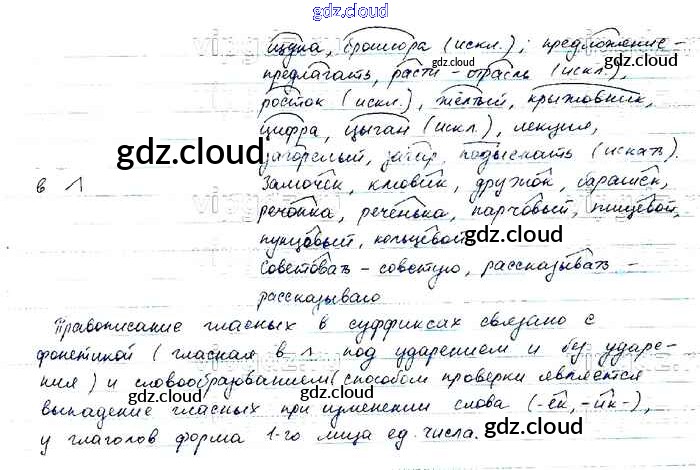 gdz.cloud
щука, брошюра (искл.); предложение-
gdz.cloud
предлагать, расти - отрасль (искл.),
gdz.cloud
росток (искл.), жёлтый, крыжовник,
цифра, цыган (искл.), лекция,
gdz.cloud
загорелый, загар, подыскать (искать).
в
Замочек, ключик, дружок, барашек,
речонка, реченька, парчовый, пищевой,
пунцовый, кольцевой
gdz.cloud
Советовать - советую, рассказывать -
рассказываю
gdz.cloud
Правописание гласных в суффиксах связано с
фонетикой (гласная в под ударением и без ударе-
ния) и словообразованием (способом проверки является
выпадение гласных при изменении слова (-ек, -ик-),
у глаголов форма 1-го лица ед. числа.
gdz.cloud